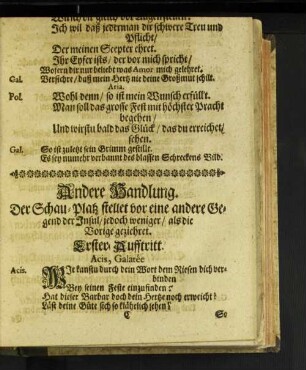 Ich wil daß jederman dir schwere Treu und
Pflicht/
Der meinen Scepter ehret.
Ihr Eyfer ists/ der vor mich spricht/
Wofern dir nur beliebt was Amor mich gelehret.
Gal. Versichre/ daß mein Hertz nie deine Großmut schilt.
Aria.
Pol. Wohl denn/ so ist mein Wunsch erfüllt.
Man soll das grosse Fest mit höchster Pracht
begehen/
Und wirstu bald das Glück/ das du erreichet/
sehen.
Gal. So ist zuletzt sein Grimm gestillt.
Es sey nunmehr verbannt des blassen Schreckens Bild.
Andere Handlung.
Der Schau-Platz stellet vor eine andere Ge-
gend der Insul/ jedoch weniger/ als die
Vorige gezieret.
Erster Aufftritt.
Acis, Galatée
Acis. Wie kanstu durch dein Wort dem Riesen dich ver-
binden
Bey seinen Feste einzufinden?
Hat dieser Barbar doch dein Hertze noch erweicht?
Läst deine Güte sich so kläglich sehen?
C So